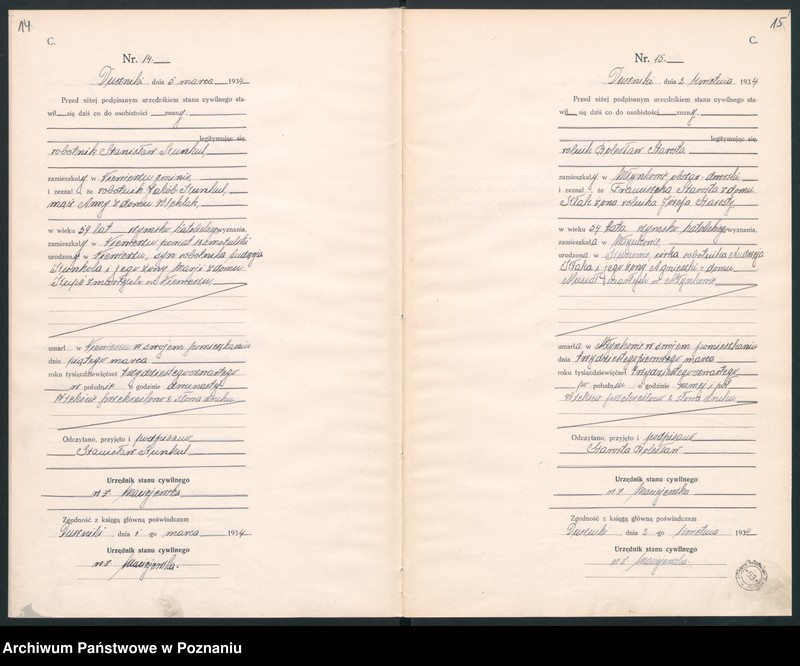 14
C.
Nr. 14.
Duszniki, dnia 5 marca 1934
Przed niżej podpisanym urzędnikiem stanu cywilnego sta-
wił się dziś co do osobistości znany,
legitymując się,
robotnik Stanisław Kunkul,
zamieszkały w gminie,
i zeznał, że robotnik Jakób Kunkul,
mąż Anny z domu
w wieku 59 lat rzymsko katolickiego wyznania,
zamieszkały w powiat szamotulski
urodzony w syn robotnika
i jego żony Marji z domu
zmarłych w
umarł w w swojem pomieszkaniu
dnia piątego marca
roku tysiącdziewięćset trzydziestego czwartego
w południe o godzinie dwunastej
W tekście przekreślono 2 słowa druku
Odczytano, przyjęto i podpisano
Stanisław Kunkul
Urzędnik stanu cywilnego
w z. Maciejewska
Zgodność z księgą główną poświadczam
Duszniki, dnia -go marca 1934
Urzędnik stanu cywilnego
w z. Maciejewska.
15
C.
Nr. 15.
Duszniki, dnia 2 kwietnia 1934
Przed niżej podpisanym urzędnikiem stanu cywilnego sta-
wił się dziś co do osobistości znany,
legitymując się,
rolnik Bolesław Starosta
zamieszkały w Młynkowie, obszar dworski
i zeznał, że Franciszka Starosta z domu
żona rolnika Józefa Starosty
w wieku lata rzymsko katolickiego wyznania,
zamieszkała w Młynkowie,
urodzona w córka robotnika Andrzeja
i jego żony Agnieszki z domu
Musiał zmarłych w Młynkowie
umarła w Młynkowie w swojem pomieszkaniu
dnia trzydziestego pierwszego marca
roku tysiącdziewięćset trzydziestego czwartego
po południu o godzinie i pół
W tekście przekreślono 2 słowa druku
Odczytano, przyjęto i podpisano
Starosta Bolesław
Urzędnik stanu cywilnego
w z. Maciejewska
Zgodność z księgą główną poświadczam
Duszniki, dnia 2 -go kwietnia 1934
Urzędnik stanu cywilnego
w z. Maciejewska.
Archiwum Państwowe w Poznaniu